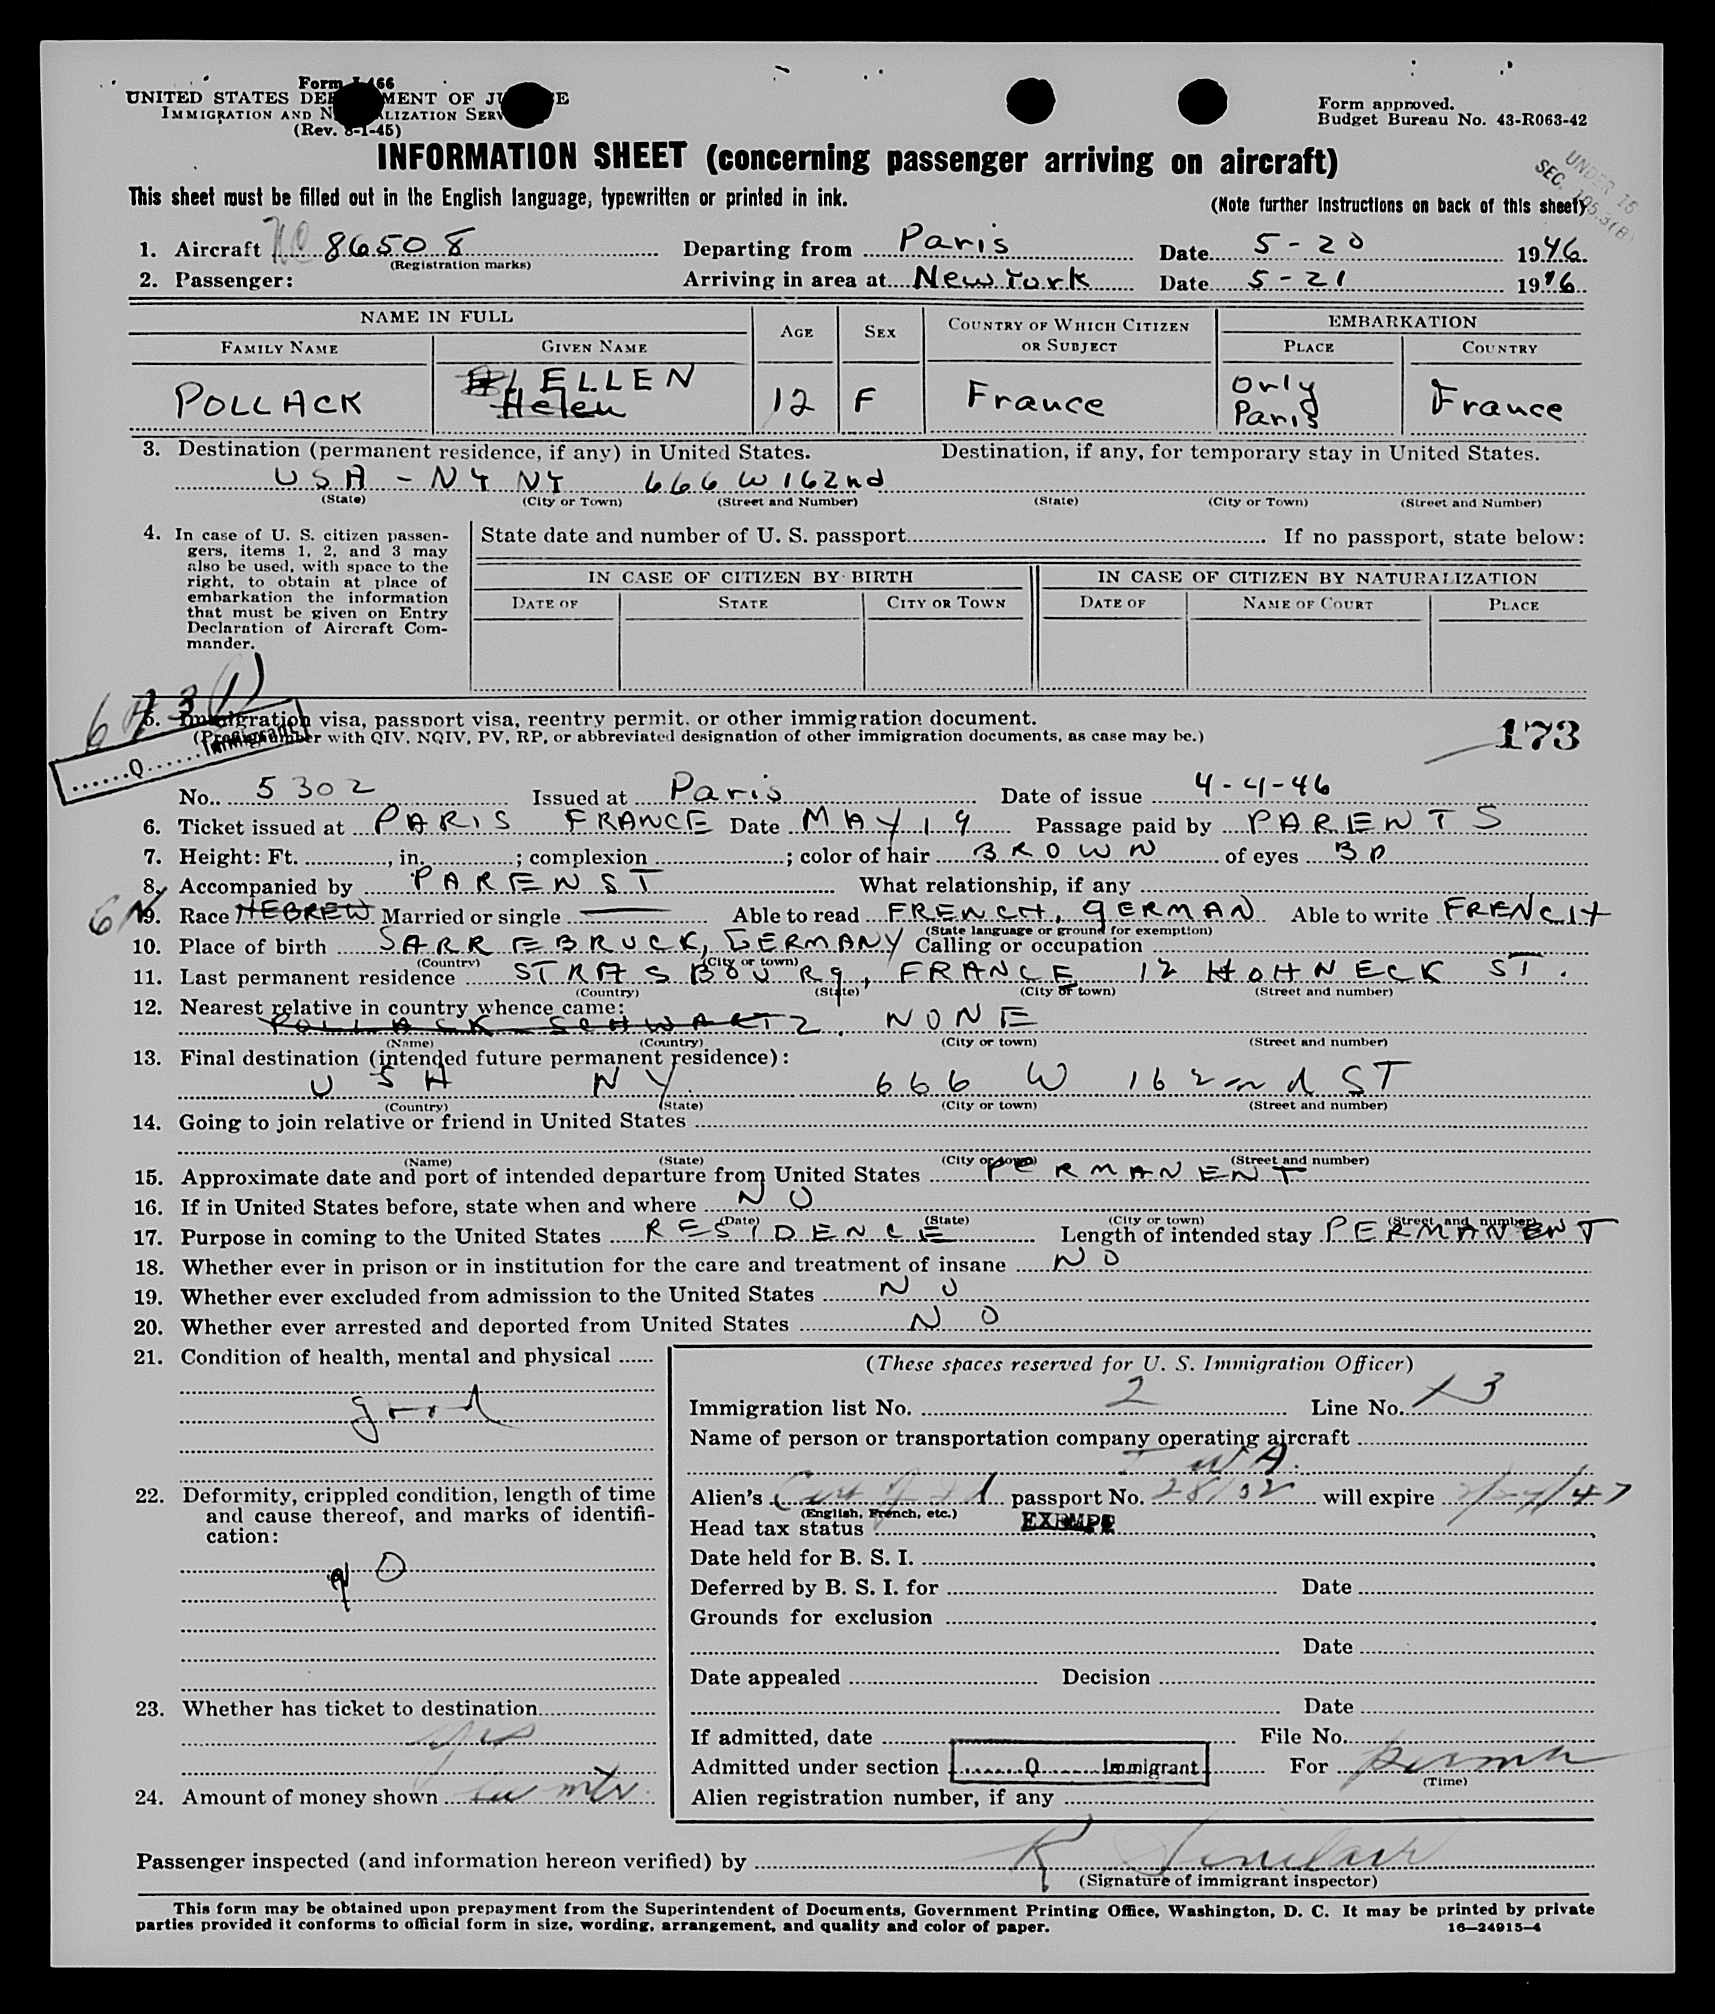 Form I-466
UNITED STATES DEPARTMENT OF JUSTICE
IMMIGRATION AND NATURALIZATION SERVICE
(Rev. 8-1-45)
Form approved.
Budget Bureau No. 43-R063-42
INFORMATION SHEET (concerning passenger arriving on aircraft)
UNDER 16
SEC.
This sheet must be filled out in the English language, typewritten or printed in ink.
(Note further instructions on back of this sheet)
1. Aircraft NC 86508 Departing from Paris Date 5-20 1946
(Registration marks)
2. Passenger: Arriving in area at New York Date 5-21 1946
NAME IN FULL AGE SEX COUNTRY OF WHICH CITIZEN OR SUBJECT EMBARKATION
FAMILY NAME GIVEN NAME PLACE COUNTRY
POLLACK ELLEN Helen 12 F France Orly Paris France
3. Destination (permanent residence, if any) in United States. Destination, if any, for temporary stay in United States.
USA - NY NY 666 W 162nd
(State) (City or Town) (Street and Number) (State) (City or Town) (Street and Number)
4. In case of U. S. citizen passengers, items 1, 2, and 3 may also be used, with space to the right, to obtain at place of embarkation the information that must be given on Entry Declaration of Aircraft Commander.
State date and number of U. S. passport If no passport, state below:
IN CASE OF CITIZEN BY BIRTH IN CASE OF CITIZEN BY NATURALIZATION
DATE OF STATE CITY OR TOWN DATE OF NAME OF COURT PLACE
5. Immigration visa, passport visa, reentry permit, or other immigration document.
(Prefix number with QIV, NQIV, PV, RP, or abbreviated designation of other immigration documents, as case may be.)
173
Q Immigrant
No. 5302 Issued at Paris Date of issue 4-4-46
6. Ticket issued at PARIS FRANCE Date MAY 19 Passage paid by PARENTS
7. Height: Ft. , in. ; complexion ; color of hair BROWN of eyes
8. Accompanied by PARENST What relationship, if any
9. Race HEBREW Married or single — Able to read FRENCH, GERMAN Able to write FRENCH
(State language or ground for exemption)
10. Place of birth SARREBRUCK, GERMANY Calling or occupation
(Country) (City or town)
11. Last permanent residence STRASBOURG, FRANCE 12 HOHNECK ST.
(Country) (State) (City or town) (Street and number)
12. Nearest relative in country whence came:
POLLACK SCHWARTZ. NONE
(Name) (Country) (City or town) (Street and number)
13. Final destination (intended future permanent residence):
USA NY. 666 W 162nd ST
(Country) (State) (City or town) (Street and number)
14. Going to join relative or friend in United States
(Name) (State) (City or town) (Street and number)
15. Approximate date and port of intended departure from United States PERMANENT
16. If in United States before, state when and where NO
(Date) (State) (City or town) (Street and number)
17. Purpose in coming to the United States RESIDENCE Length of intended stay PERMANENT
18. Whether ever in prison or in institution for the care and treatment of insane NO
19. Whether ever excluded from admission to the United States NO
20. Whether ever arrested and deported from United States NO
21. Condition of health, mental and physical
good
22. Deformity, crippled condition, length of time and cause thereof, and marks of identification:
23. Whether has ticket to destination
yes
24. Amount of money shown
(These spaces reserved for U. S. Immigration Officer)
Immigration list No. 2 Line No. 13
Name of person or transportation company operating aircraft
TWA.
Alien's passport No. will expire
(English, French, etc.)
Head tax status EXEMPT
Date held for B. S. I.
Deferred by B. S. I. for Date
Grounds for exclusion
Date
Date appealed Decision
Date
If admitted, date File No.
Admitted under section Q Immigrant For perma
(Time)
Alien registration number, if any
Passenger inspected (and information hereon verified) by R Sinclair
(Signature of immigrant inspector)
This form may be obtained upon prepayment from the Superintendent of Documents, Government Printing Office, Washington, D. C. It may be printed by private
parties provided it conforms to official form in size, wording, arrangement, and quality and color of paper.
16—24915-4